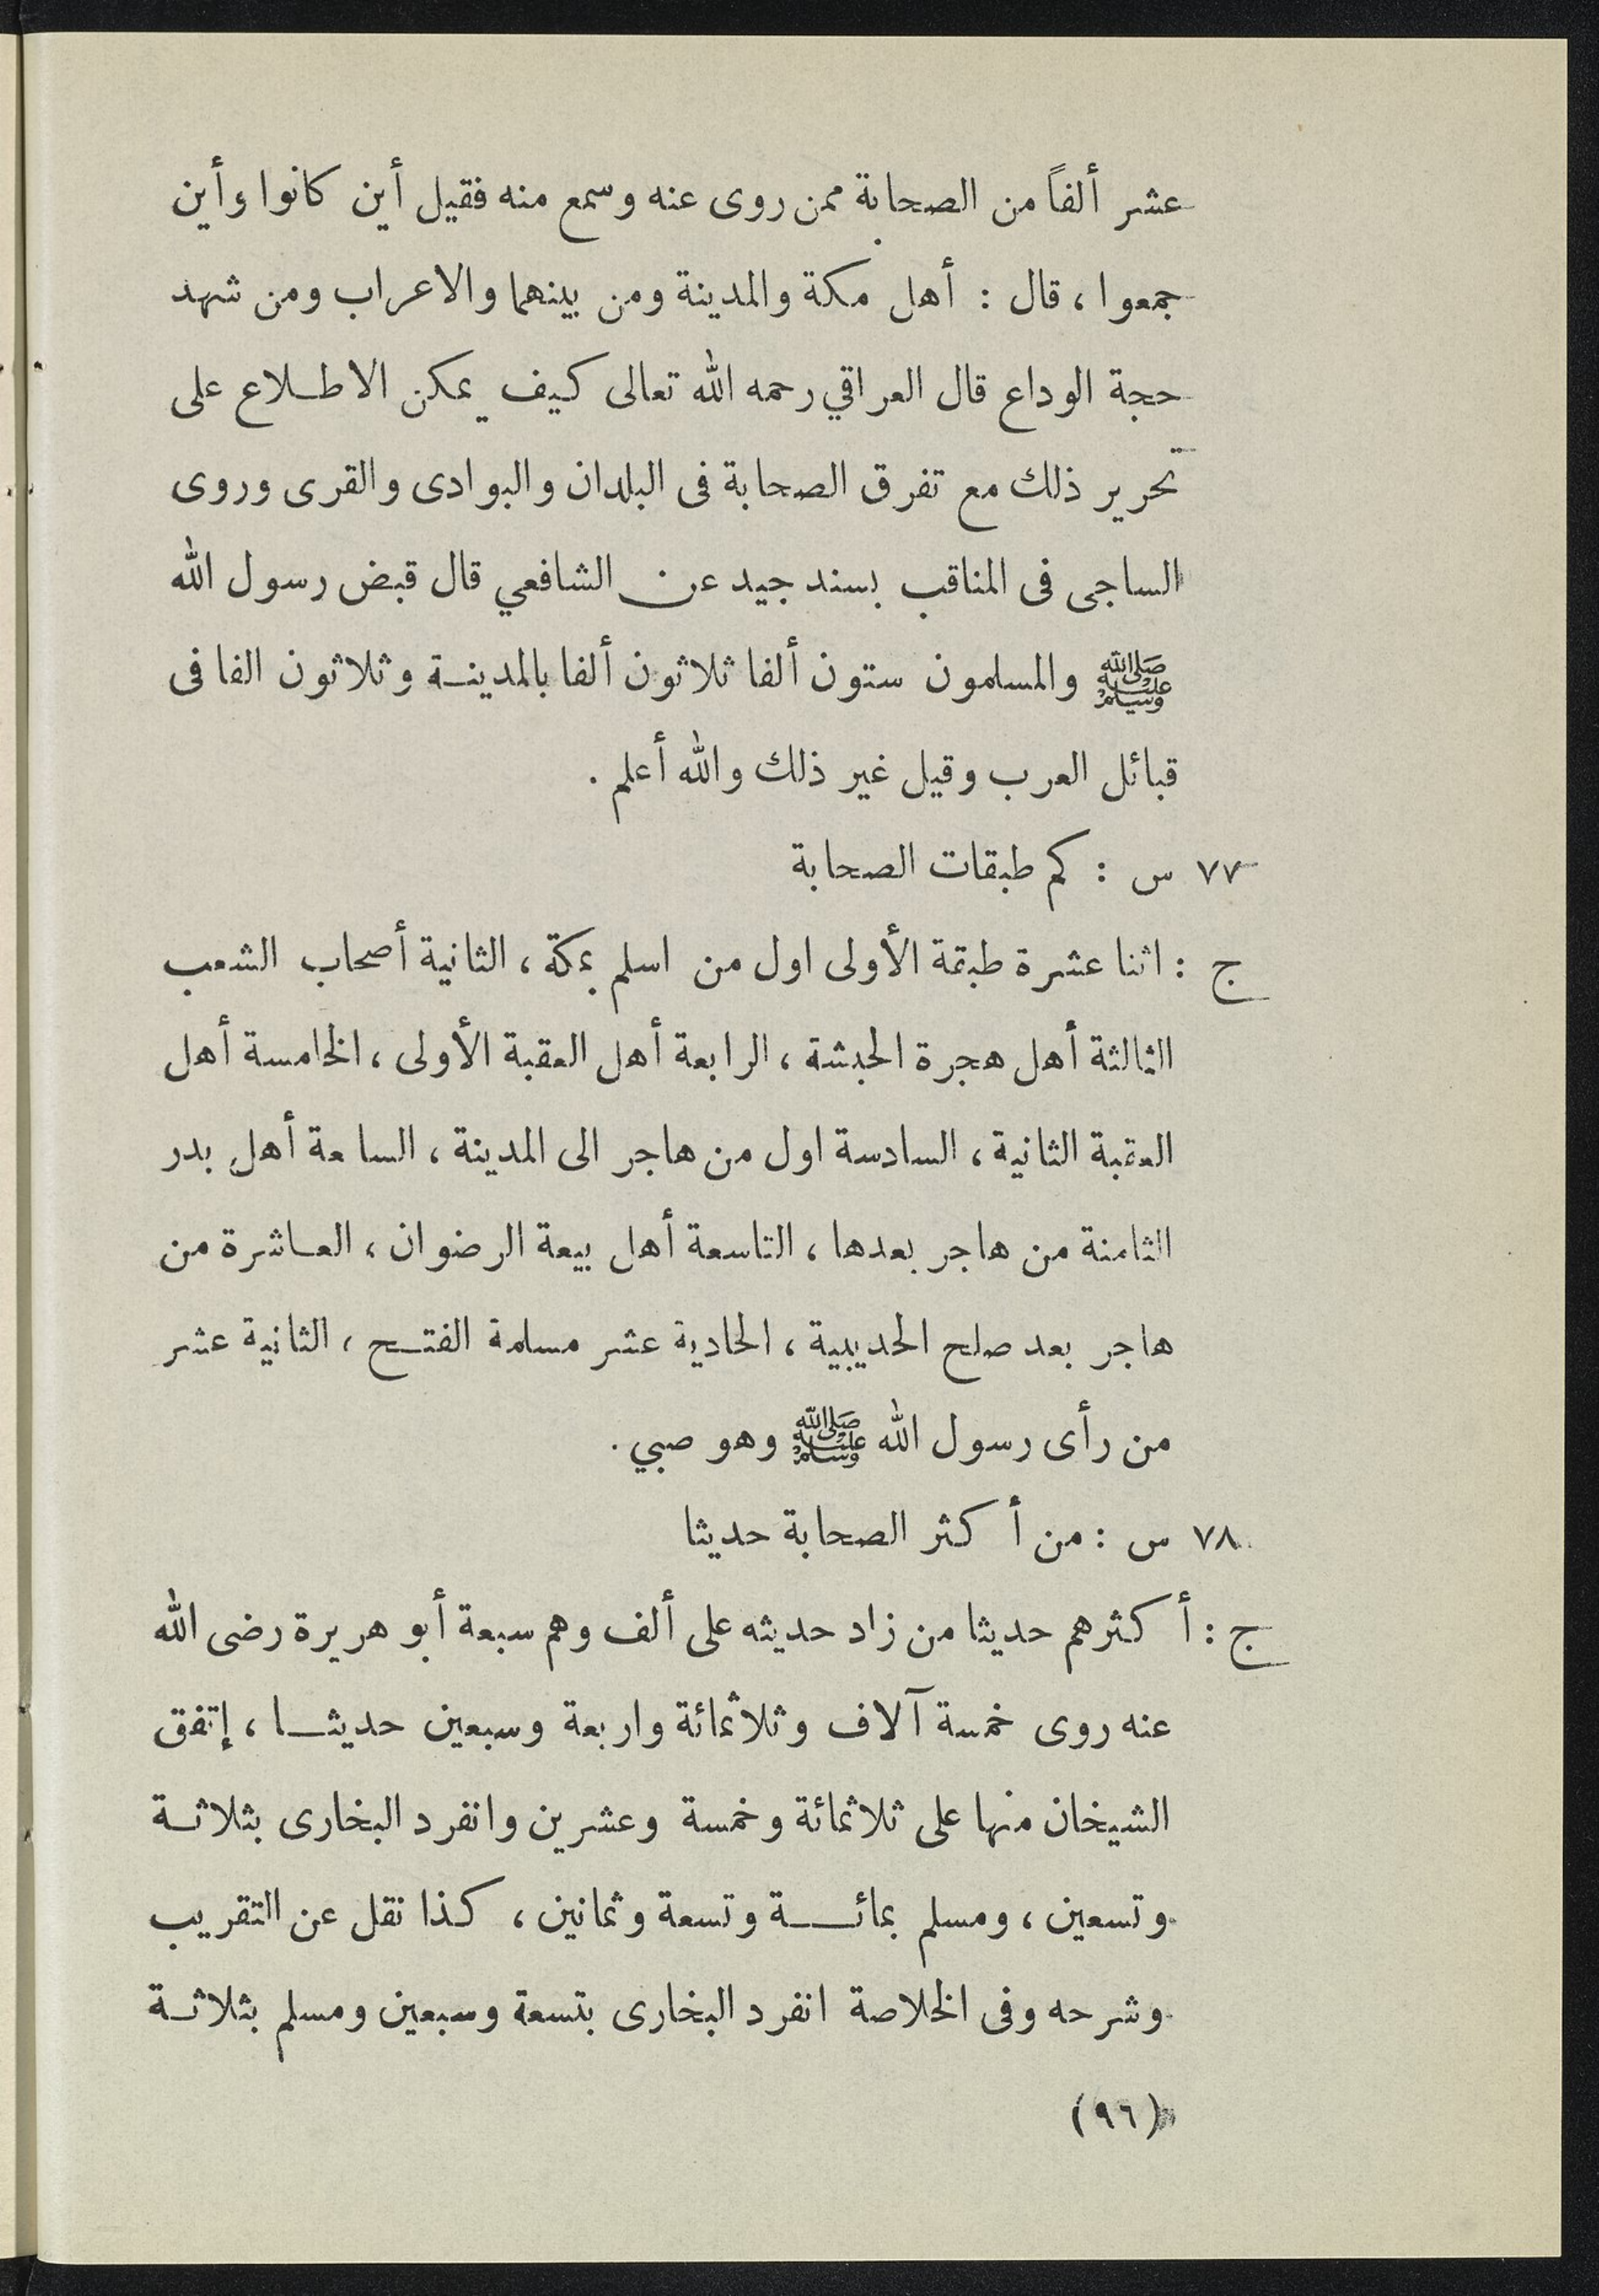 عشر ألفاً من الصحابة ممن روى عنه وسمع منه فقيل أين كانوا وأين
جمعوا ، قال : أهل مكة والمدينة ومن بينهما والاعراب ومن شهد
حجة الوداع قال العراقي رحمه الله تعالى كيف يمكن الاطلاع على
تحرير ذلك مع تفرق الصحابة فى البلدان والبوادى والقرى وروى
الساجى فى المناقب بسند جيد عن الشافعي قال قبض رسول الله
ﷺ والمسلمون ستون ألفا ثلاثون ألفا بالمدينة وثلاثون الفا فى
قبائل العرب وقيل غير ذلك والله أعلم .
٧٧ س : كم طبقات الصحابة
ج : اثنا عشرة طبقة الأولى اول من اسلم بمكة ، الثانية أصحاب الشعب
الثالثة أهل هجرة الحبشة ، الرابعة أهل العقبة الأولى ، الخامسة أهل
العقبة الثانية ، السادسة اول من هاجر الى المدينة ، السابعة أهل بدر
الثامنة من هاجر بعدها ، التاسعة أهل بيعة الرضوان ، العاشرة من
هاجر بعد صلح الحديبية ، الحادية عشر مسلمة الفتح ، الثانية عشر
من رأى رسول الله ﷺ وهو صبي .
٧٨ س : من أكثر الصحابة حديثا
ج : أكثرهم حديثا من زاد حديثه على ألف وهم سبعة أبو هريرة رضى الله
عنه روى خمسة آلاف وثلاثمائة واربعة وسبعين حديثا ، إتفق
الشيخان منها على ثلاثمائة وخمسة وعشرين وانفرد البخارى بثلاثة
وتسعين ، ومسلم بمائة وتسعة وثمانين ، كذا نقل عن التقريب
وشرحه وفى الخلاصة انفرد البخارى بتسعة وسبعين ومسلم بثلاثة
(٩٦)